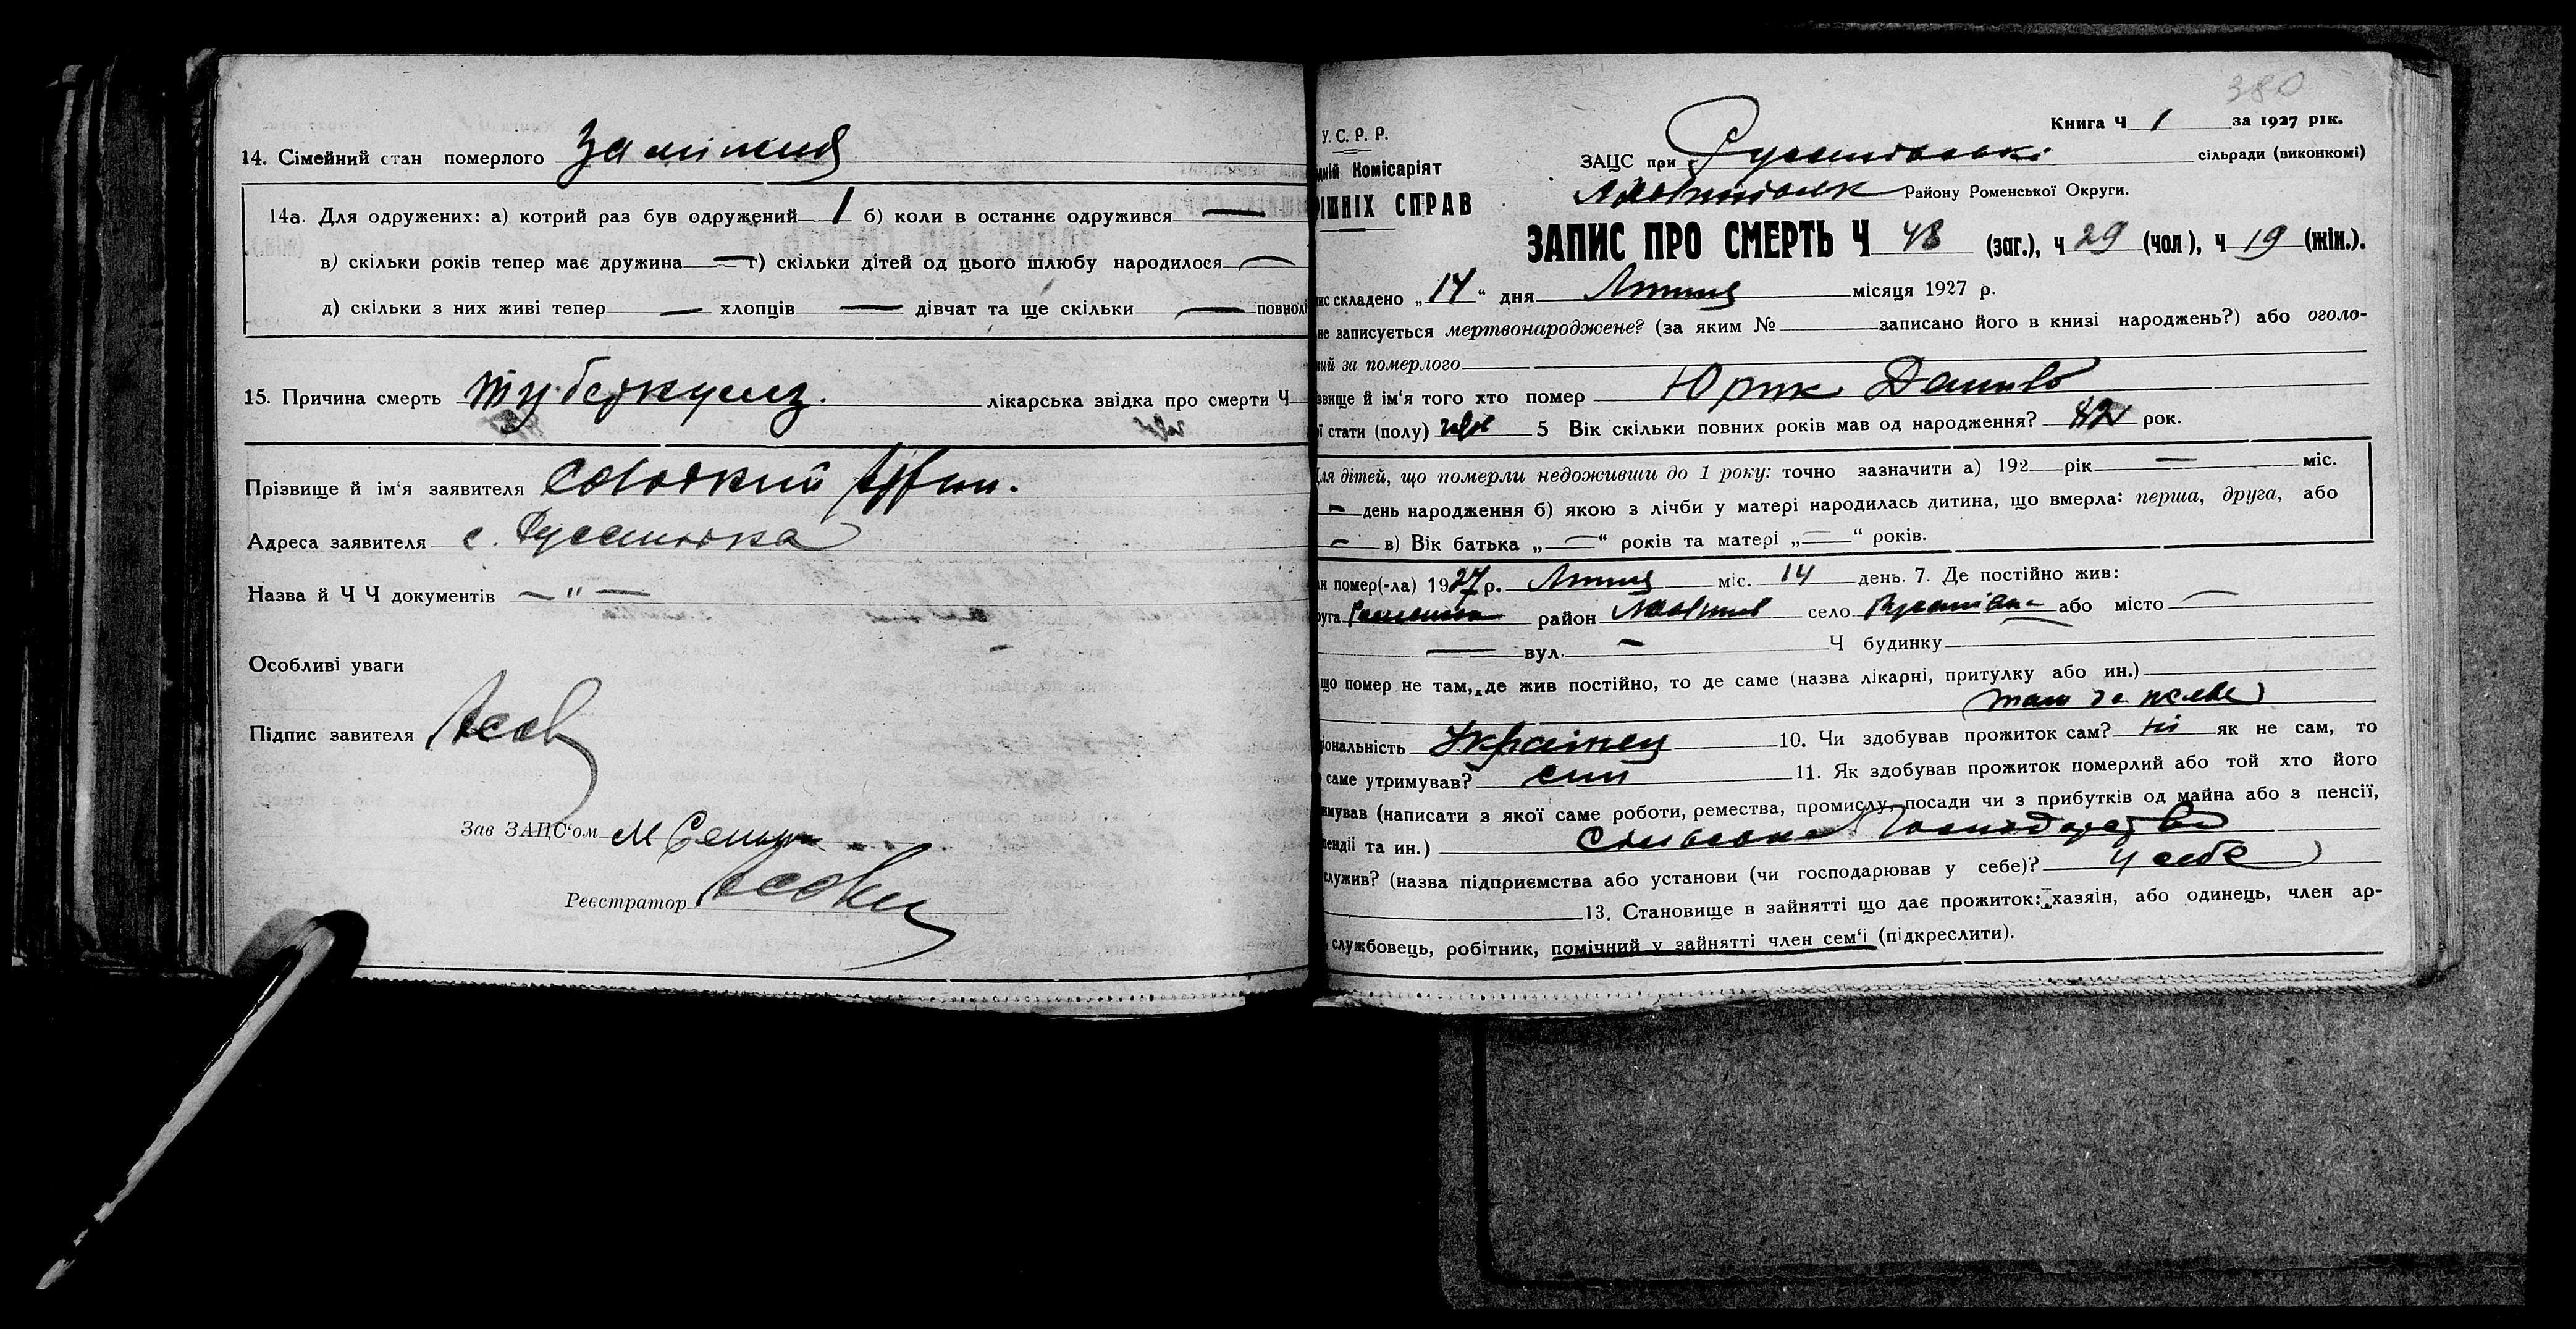 14. Сімейний стан померлого Заміжня
14а. Для одружених: а) котрий раз був одружений 1 б) коли в останнє одружився —
в) скільки років тепер має дружина — г) скільки дітей од цього шлюбу народилося —
д) скільки з них живі тепер — хлопців — дівчат та ще скільки — повнолі
15. Причина смерть туберкульз. лікарська звідка про смерти Ч
Прізвище й ім'я заявителя
Адреса заявителя с. Русанівка
Назва й Ч Ч документів — " —
Особливі уваги
Підпис завителя
Зав ЗАЦС'ом
Реєстратор
380
У. С. Р. Р.
дній Комісаріят
ІШНІХ СПРАВ
Книга Ч 1 за 1927 рік.
ЗАЦС при Русанівські сільради (виконкомі)
Району Роменської Округи.
ЗАПИС ПРО СМЕРТЬ Ч 48 (заг.), ч 29 (чол), ч 19 (жін.).
ис складено „14" дня Липня місяця 1927 р.
не записується мертвонароджене? (за яким № записано його в книзі народжень?) або оголо-
ний за померлого
звище й ім'я того хто помер Юрик Данило
ї стати (полу) чол 5 Вік скільки повних років мав од народження? 82 рок.
Для дітей, що померли недоживши до 1 року: точно зазначити а) 192 рік — міс.
— день народження б) якою з лічби у матері народилась дитина, що вмерла: перша, друга, або
— в) Вік батька „—" років та матері „—" років.
ли помер(-ла) 1927 р. Липня міс. 14 день. 7. Де постійно жив:
руга Роменська район село Русанівка або місто —
— вул. — Ч будинку
що помер не там, де жив постійно, то де саме (назва лікарні, притулку або ин.)
там де й жив
іональність Українец 10. Чи здобував прожиток сам? ні як не сам, то
саме утримував? син 11. Як здобував прожиток померлий або той хто його
имував (написати з якої саме роботи, ремества, промислу, посади чи з прибутків од майна або з пенсії,
пендії та ин.) сільське господарство
служив? (назва підприємства або установи (чи господарював у себе)? у себе
13. Становище в зайнятті що дає прожиток: хазяін, або одинець, член ар-
службовець, робітник, помічний у зайнятті член сем'ї (підкреслити).